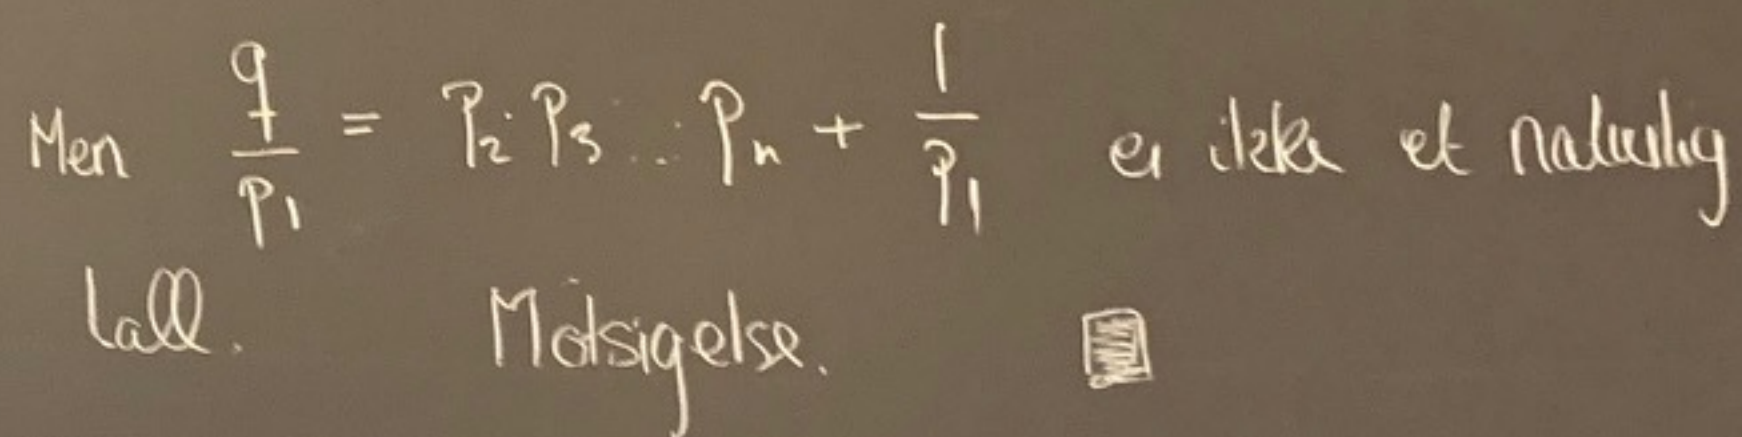 Men q/p₁ = p₂·p₃...pₙ + 1/p₁ er ikke et naturlig
tall. Motsigelse.